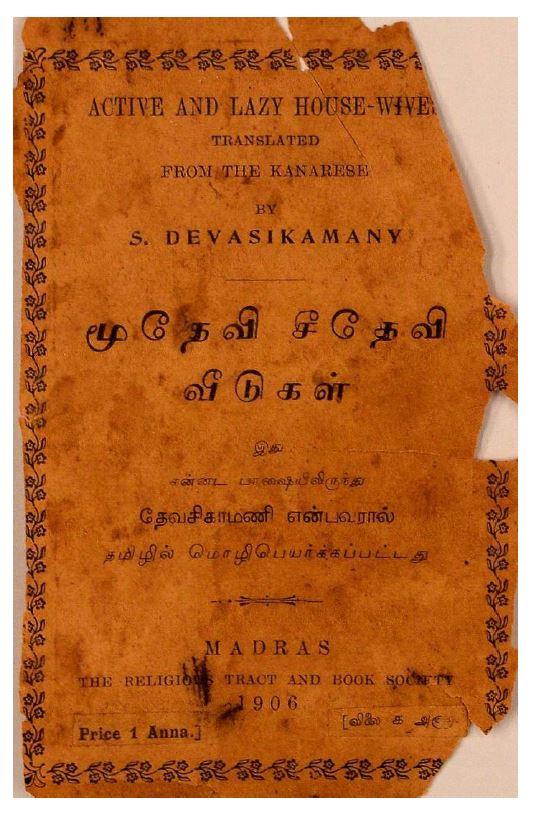 ACTIVE AND LAZY HOUSE-WIVE
TRANSLATED
FROM THE KANARESE
BY
S. DEVASIKAMANY
மூதேவி சீதேவி
வீடுகள்
இது
கன்னட பாஷையிலிருந்து
தேவசிகாமணி என்பவரால்
தமிழில் மொழிபெயர்க்கப்பட்டது
MADRAS
THE RELIGIOUS TRACT AND BOOK SOCIETY
1906
Price 1 Anna.]
[விலை க